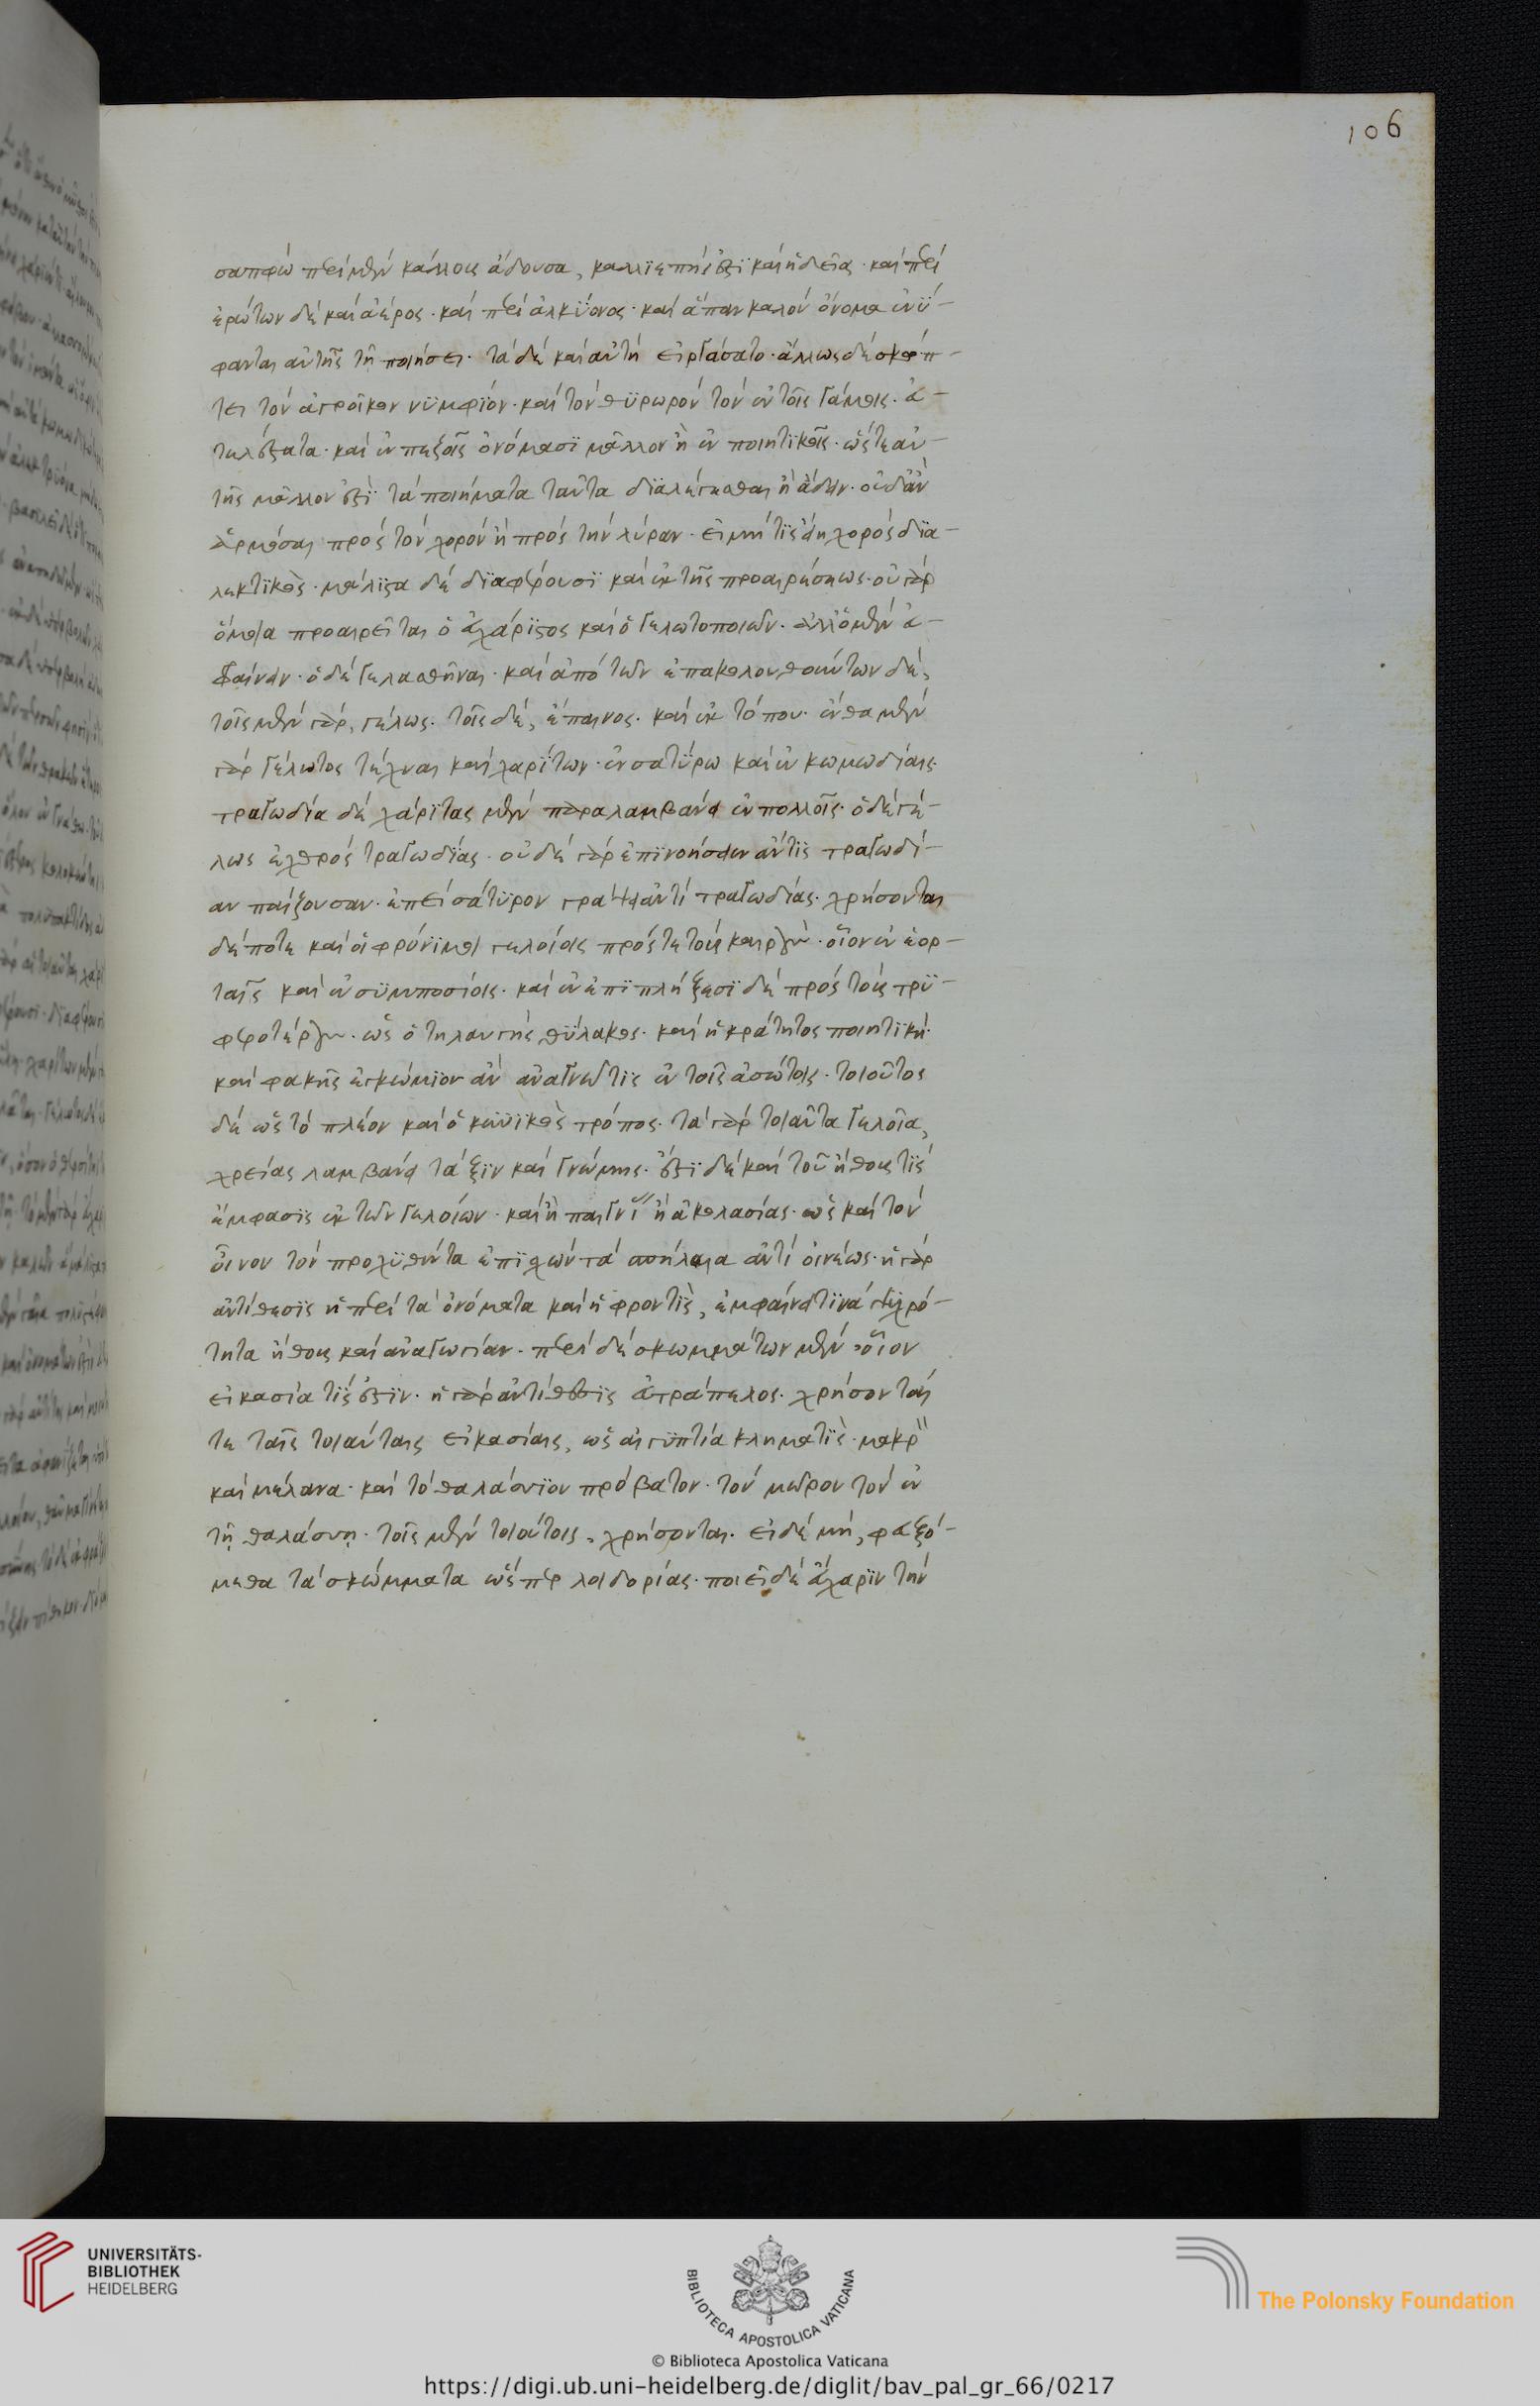 106
σαπφώ περὶ μὲν κάλλους ἄδουσα, καλλϊεπής ἐστϊ καὶ ἡδεῖα· καὶ περὶ
ἐρώτων δὲ καὶ ἀέρος· καὶ περὶ ἀλκϋόνος· καὶ ἅπαν καλὸν ὄνομα ἐνϋ-
φανται αὐτῆς τῇ ποιήσει· τὰ δὲ καὶ αὐτὴ εἰργάσατο· ἄλλως δὲ σκώπ-
τει τὸν ἀγροῖκον νϋμφϊόν· καὶ τὸν θϋρωρὸν τὸν ἐν τοῖς γάμοις· εὐ-
τελέστατα· καὶ ἐν πεζοῖς ὀνόμασϊ μᾶλλον ἢ ἐν ποιητϊκοῖς· ὥστε αὐ-
τῆς μᾶλλον ἐστὶ τὰ ποιήματα ταῦτα δϊαλέγεσθαι ἢ ἄδειν· οὐδ' ἂν
ἁρμόσαι πρὸς τὸν χορὸν ἢ πρὸς τὴν λύραν· εἰ μή τϊς εἴη χορὸς δϊα-
λεκτϊκός· μάλϊστα δὲ δϊαφέρουσϊ καὶ ἐκ τῆς προαιρέσεως· οὐ γὰρ
ὅμοια προαιρεῖται ὁ εὐχάρϊστος καὶ ὁ γελωτοποιῶν· ἀλλ' ὁ μὲν εὐ-
φραίνειν· ὁ δὲ γελασθῆναι· καὶ ἀπὸ τῶν ἐπακολουθούντων δέ,
τοῖς μὲν γὰρ, γέλως· τοῖς δέ, ἔπαινος· καὶ ἐκ τόπου· ἔνθα μὲν
γὰρ γέλωτος τέχναι καὶ χαρϊτων· ἐν σατύρω καὶ ἐν κωμωδίαις·
τραγωδία δὲ χάρϊτας μὲν παραλαμβάνει ἐν πολλοῖς· ὁ δὲ γέ-
λως ἐχθρὸς τραγωδίας· οὐδὲ γὰρ ἐπϊνοήσειεν ἄν τϊς τραγωδί-
αν παίζουσαν· ἐπεὶ σάτϋρον γράψει ἀντὶ τραγωδίας· χρήσονται
δέ ποτε καὶ οἱ φρόνϊμοι γελοίοις πρός τε τοὺς καιρούς· οἷον ἐν ἑορ-
ταῖς καὶ ἐν σϋμποσίοις· καὶ ἐν ἐπϊπλήξεσϊ δὲ πρὸς τοὺς τρϋ-
φερωτέρους· ὡς ὁ τηλαυγὴς θϋλακος· καὶ ἡ κράτητος ποιητϊκή·
καὶ φακῆς ἐγκώμϊον ἂν ἀναγνῷ τϊς ἐν τοῖς ἀσώτοις· τοιοῦτος
δὲ ὡς τὸ πλέον καὶ ὁ κυνϊκὸς τρόπος· τὰ γὰρ τοιαῦτα γελοῖα,
χρείας λαμβάνει τάξϊν καὶ γνώμης· ἔστϊ δὲ καὶ τοῦ ἤθους τϊς
ἔμφασϊς ἐκ τῶν γελοίων· καὶ ἢ παιγνί ἢ ἀκολασίας· ὡς καὶ τὸν
οἶνον τὸν προχϋθέντα ἐπϊσχών τὰ ἀντὶ οἰνέως· ἡ γὰρ
ἀντίθεσϊς ἡ περὶ τὰ ὀνόματα καὶ ἡ φροντὶς, ἐμφαίνει τϊνὰ ψυχρό-
τητα ἤθους καὶ ἀναγωγίαν· περὶ δὲ σκωμμάτων μὲν· οἷον
εἰκασία τίς ἐστϊν· ἡ γὰρ ἀντίθεσϊς εὐτράπελος· χρήσονταί
τε ταῖς τοιαύταις εἰκασίαις, ὡς αἰγϋπτία κληματϊς· μακρ
καὶ μέλανα· καὶ τὸ θαλάσσϊον πρόβατον· τὸν μῶρον τὸν ἐν
τῇ θαλάσση· τοῖς μὲν τοιούτοις, χρήσονται· εἰ δὲ μή, φευξό-
μεθα τὰ σκώμματα ὥσπερ λοιδορίας· ποιεῖ δὲ εὔχαρϊν τὴν
UNIVERSITÄTS-
BIBLIOTHEK
HEIDELBERG
BIBLIOTECA APOSTOLICA VATICANA
The Polonsky Foundation
© Biblioteca Apostolica Vaticana
https://digi.ub.uni-heidelberg.de/diglit/bav_pal_gr_66/0217